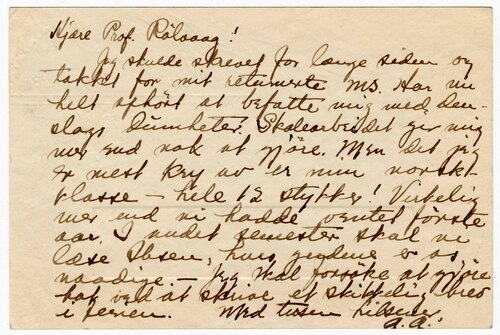 Kjære Prof. Rölvaag!
Jeg skulde skrevet for længe siden og
takket for mit returnerte MS. Har nu
helt ophört at befatte mig med den-
slags dumheter. Skolearbeidet gir mig
mer end nok at gjöre. Men det jeg
er mest kry av er min norsk-
klasse — hele 12 stykker! Virkelig
mer end vi hadde ventet förste
aar. I andet semester skal vi
læse Ibsen, hvis guderne er os
naadige. — Jeg skal forsöke at gjöre
bot ved at skrive et skikkelig brev
i ferien. Med tusen hilsener
A. A.